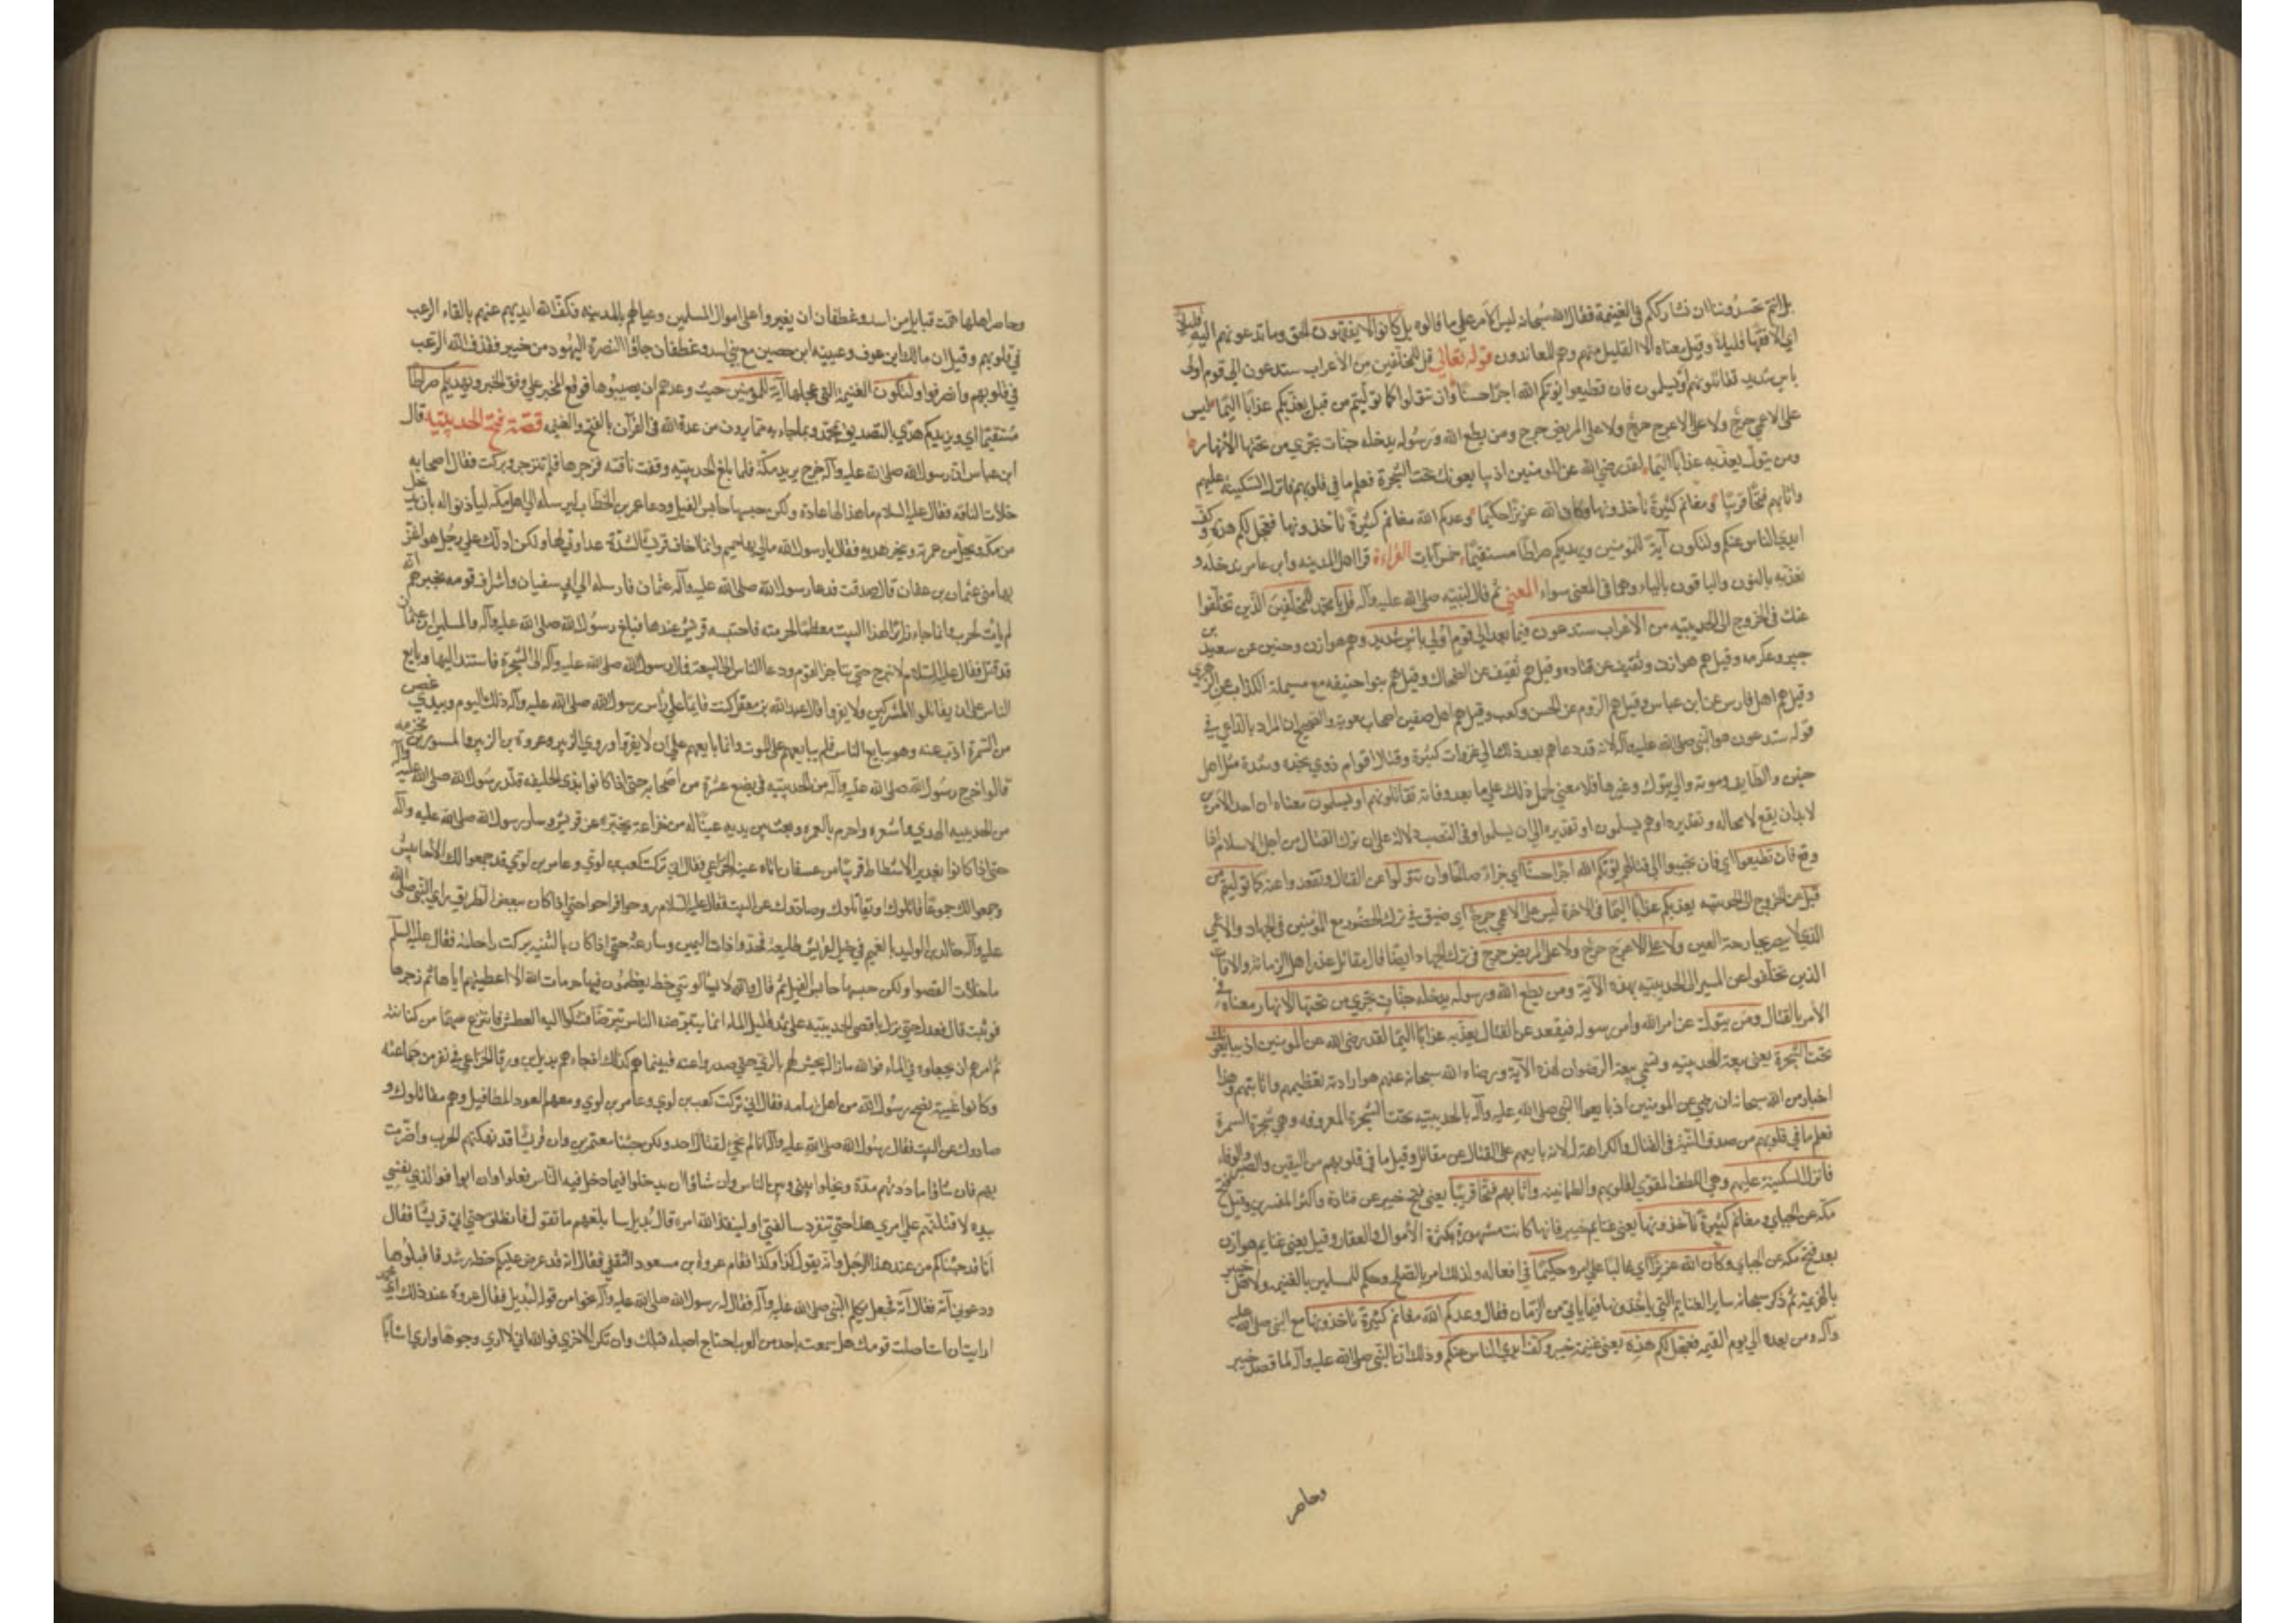 بل انتم تحسدوننا ان نشارككم في الغنيمة فقال الله سبحانه ليس الامر علي ما قالوه بل كانوا لا يفقهون الحق وما تدعونهم اليه الا قليلا
اي الا فقها قليلا وقيل معناه الا القليل منهم وهم المعاندون قوله تعالي قل للمخلفين من الأعراب ستدعون الي قوم اولي
باس شديد تقاتلونهم او يسلمون فان تطيعوا يؤتكم الله اجرا حسنا وان تتولوا كما توليتم من قبل يعذبكم عذابا اليما ليس
علي الاعمي حرج ولا علي الاعرج حرج ولا علي المريض حرج ومن يطع الله ورسوله يدخله جنات تجري من تحتها الأنهار
ومن يتول يعذبه عذابا اليما لقد رضي الله عن المومنين اذ يبايعونك تحت الشجرة فعلم ما في قلوبهم فانزل السكينة عليهم
واثابهم فتحا قريبا ومغانم كثيرة ياخذونها وكان الله عزيزا حكيما وعدكم الله مغانم كثيرة تاخذونها فعجل لكم هذه وكف
ايدي الناس عنكم ولتكون آية للمؤمنين ويهديكم صراطا مستقيما خمس آيات القراءة قرا اهل المدينه وابن عامر ندخله و
نعذبه بالنون والباقون بالياء وهما في المعني سواء المعني ثم قال لنبيه صلي الله عليه وآله قل يا محمد للمخلفين الذين تخلفوا
عنك في الخروج الي الحديبيه من الأعراب ستدعون فيما بعد الي قوم اولي باس شديد وهم هوازن وحنين عن سعيد بن
جبير وعكرمه وقيل هم هوازن وثقيف عن قتاده وقيل هم ثقيف عن الضحاك وقيل هم بنوا حنيفه مع مسيلمة الكذاب عن الزهري
وقيل هم اهل فارس عن ابن عباس وقيل هم الروم عن الحسن وكعب وقيل هم اهل صفين اصحاب معوية والصحيح ان المراد بالداعي في
قوله ستدعون هو النبي صلي الله عليه وآله لانه قد دعاهم بعد ذلك الي غزوات كثيرة وقتال اقوام ذوي نجده وشدة مثل اهل
حنين والطايف وموته والي تبوك وغيرها فلا معني لحمل ذلك علي ما بعد وفاته تقاتلونهم او يسلمون معناه ان احد الأمرين
لا بد ان يقع لا محاله وتقديره او هم يسلمون او تقديره الي ان يسلموا وفي النصب دلالة علي ان ترك القتال من اجل الاسلام اذا
وقع فان تطيعوا اي فان تجيبوا الي قتالهم يؤتكم الله اجرا حسنا اي جزاء صالحا وان تتولوا عن القتال وتقعدوا عنه كما توليتم من
قبل عن الخروج الي الحديبيه يعذبكم عذابا اليما في الاخرة ليس علي الاعمي حرج اي ضيق في ترك الحضور مع المؤمنين في الجهاد والاعمي
الذي لا يبصر بجارحة العين ولا علي الاعرج حرج ولا علي المريض حرج في ترك الجهاد ايضا قال مقاتل عذر اهل الزمانه والافات
الذين تخلفوا عن المسير الي الحديبيه بهذه الآية ومن يطع الله ورسوله يدخله جنات تجري من تحتها الانهار معناه في
الأمر بالقتال ومن يتول عن امر الله وامر رسوله فيقعد عن القتال يعذبه عذابا اليما لقد رضي الله عن المومنين اذ يبايعونك
تحت الشجرة يعني بيعة الحديبيه وتسمي بيعة الرضوان لهذه الآية ورضاء الله سبحانه عنهم هو ارادته تعظيمهم واثابتهم وهذا
اخبار من الله سبحانه انه رضي عن المومنين اذ بايعوا النبي صلي الله عليه وآله بالحديبيه تحت الشجرة المعروفه وهي شجرة السمرة
فعلم ما في قلوبهم من صدق النية في القتال والكراهة له لانه بايعهم علي القتال عن مقاتل وقيل ما في قلوبهم من اليقين والصبر والوفاء
فانزل السكينة عليهم وهي اللطف المقوي لقلوبهم والطمانينه واثابهم فتحا قريبا يعني فتح خيبر عن قتادة واكثر المفسرين وقيل فتح
مكه عن الجبايي ومغانم كثيرة ياخذونها يعني غنايم خيبر فانها كانت مشهورة بكثرة الأموال والعقار وقيل يعني غنايم هوازن
بعد فتح مكه عن الجبايي وكان الله عزيزا اي غالبا علي امره حكيما في افعاله ولذلك امر بالصلح وحكم للمسلمين بالغنيمه ولاهل خيبر
بالهزيمة ثم ذكر سبحانه ساير الغنايم التي ياخذونها فيما ياتي من الزمان فقال وعدكم الله مغانم كثيرة تاخذونها مع النبي صلي الله عليه
وآله ومن بعده الي يوم القيمه فعجل لكم هذه يعني غنيمة خيبر وكف ايدي الناس عنكم وذلك ان النبي صلي الله عليه وآله لما قصد خيبر
وحاصر
وحاصر اهلها همت قبايل من اسد وغطفان ان يغيروا علي اموال المسلمين وعيالهم بالمدينه فكف الله ايديهم عنهم بالقاء الرعب
في قلوبهم وقيل ان مالك ابن عوف وعيينه ابن حصين مع بني اسد وغطفان جاؤا لنصرة اليهود من خيبر فقذف الله الرعب
في قلوبهم وانصرفوا ولتكون الغنيمة التي عجلها آية للمؤمنين حيث وعدهم ان يصيبوها فوقع المخبر علي وفق الخبر ويهديكم صراطا
مستقيما اي ويزيدكم هدي بالتصديق بمحمد وبما جاء به مما يرون من عدة الله في القرآن بالفتح والغنيمه قصة فتح الحديبيه قال
ابن عباس ان رسول الله صلي الله عليه وآله خرج يريد مكة فلما بلغ الحديبيه وقفت ناقته فزجرها فلم تنزجر وبركت فقال اصحابه
خلات الناقه فقال عليه السلام ما هذا لها عادة ولكن حبسها حابس الفيل ودعا عمر بن الخطاب ليرسله الي اهل مكه لياذنوا له بان يدخل
من مكه ويحل من عمرته وينحر هديه فقال يا رسول الله مالي بها حميم واني اخاف قريشا لشدة عداوتي لها ولكن ادلك علي رجل هو اعز
بها مني عثمان بن عفان قال صدقت فدعا رسول الله صلي الله عليه وآله عثمان فارسله الي ابي سفيان واشراف قومه يخبرهم انه
لم يات لحرب وانما جاء زائرا لهذا البيت معظما لحرمته فاحتبسه قريش عندها فبلغ رسول الله صلي الله عليه وآله والمسلمين ان عثمان
قد قتل فقال عليه السلام لا نبرح حتي نناجز القوم ودعا الناس الي البيعة فقام رسول الله صلي الله عليه وآله الي الشجرة فاستند اليها وبايع
الناس علي ان يقاتلوا المشركين ولا يفروا قال عبد الله بن معقل كنت قايما علي راس رسول الله صلي الله عليه وآله ذلك اليوم وبيدي غصن
من السمرة اذب عنه وهو يبايع الناس فلم يبايعهم علي الموت وانما بايعهم علي ان لا يفروا وروي الزهري وعروة بن الزبير والمسور بن مخرمه
قالوا خرج رسول الله صلي الله عليه وآله من الحديبيه في بضع عشرة من اصحابه حتي اذا كانوا بذي الحليفه قلد رسول الله صلي الله عليه وآله
من الحديبيه الهدي واشعره واحرم بالعمره وبعث بين يديه عينا له من خزاعة يخبره عن قريش وسار رسول الله صلي الله عليه وآله
حتي اذا كانوا بغدير الاشطاط قريبا من عسفان اتاه عينه الخزاعي فقال اني تركت كعب بن لوي وعامر بن لوي قد جمعوا لك الأحابيش
وجمعوا لك جموعا قاتلوك او يقاتلوك وصادوك عن البيت فقال عليه السلام روحوا فراحوا حتي اذا كان ببعض الطريق قال النبي صلي الله
عليه وآله خالد بن الوليد بالغميم في خيل لقريش طليعة فخذوا ذات اليمين وسار عنه حتي اذا كان بالثنيه بركت راحلته فقال عليه السلم
ما خلات القصوا ولكن حبسها حابس الفيل ثم قال والله لا يسالوني خطه يعظمون فيها حرمات الله الا اعطيتهم اياها ثم زجرها
فوثبت قال فعدل حتي نزل باقصي الحديبيه علي ثمد قليل الماء انما يتبرضه الناس تبرضا فشكوا اليه العطش فانتزع سهما من كنانته
ثم امرهم ان يجعلوه في الماء فوالله ما زال يجيش لهم بالري حتي صدروا عنه فبينما هم كذلك اذ جاءهم بديل بن ورقا الخزاعي في نفر من خزاعة
وكانوا عيبة نصح رسول الله من اهل تهامه فقال اني تركت كعب بن لوي وعامر بن لوي ومعهم العوذ المطافيل وهم مقاتلوك و
صادوك عن البيت فقال رسول الله صلي الله عليه وآله انا لم نجئ لقتال احد ولكن جئنا معتمرين وان قريشا قد نهكتهم الحرب واضرت
بهم فان شاؤا ماددتهم مدة ويخلوا بيني وبين الناس وان شاؤا ان يدخلوا فيما دخل فيه الناس فعلوا وان ابوا فوالذي نفسي
بيده لاقاتلنهم علي امري هذا حتي تنفرد سالفتي او لينفذ الله امره فقال بديل سابلغهم ما تقول فانطلق حتي اتي قريشا فقال
انا قد جئناكم من عند هذا الرجل وانه يقول كذا وكذا فقام عروة بن مسعود الثقفي فقال انه قد عرض عليكم خطه رشد فاقبلوها
ودعوني آته فقالوا آته فجعل يكلم النبي صلي الله عليه وآله فقال له رسول الله صلي الله عليه وآله نحوا من قوله لبديل فقال عروة عند ذلك اي محمد
ارايت ان استاصلت قومك هل سمعت باحد من العرب اجتاح اصله قبلك وان تكن الاخري فوالله اني لاري وجوها واري اشابا